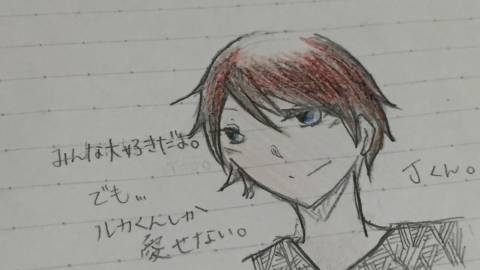 みんな大好きだよ。
でも…
ルカくんしか
愛せない。
Jくん。